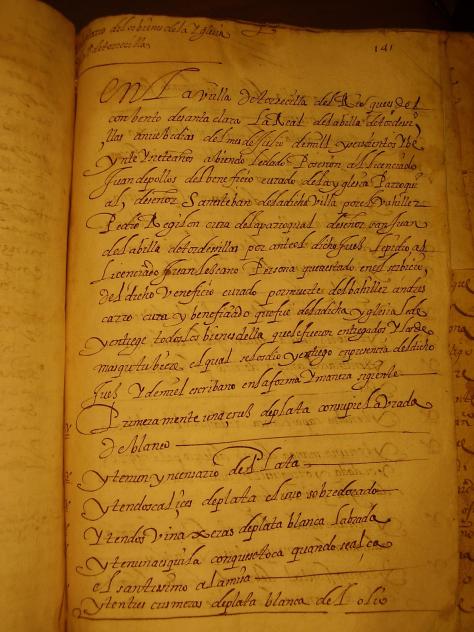 de los bienes de la yglesia
de torrecilla
141
En La villa de torrecilla del Rio ques del
conbento de santa clara La Real de la billa de tordesi
llas a nuebe dias del mes de Julio de mill y seiscientos y be
ynte y siete años abiendo le dado Posesion al licenciado
Juan de pollos del beneficio curado de la yglesia Parroqui
al de señor Santisteban de la dicha Villa por el bachiller
Pedro Regilon cura de la paroquial de señor san Juan
de la billa de tordesillas por ante el dicho Juez se pidio al
Licenciado Juan lescano Persona que a estado en el serbicio
del dicho Veneficio curado por muerte del bachiller andres
carro cura y beneficiado que fue de la dicha yglesia le de
y entrege todos los bienes della que le fueron entregados y los de
mas que tubiere el qual se los dio y entrego en presencia del dicho
Juez Y de mi el escribano en la forma y manera siguiente
Primeramente una crus de plata con su pie Labrada
de blanco
yten un yncensario de Plata
yten dos calices de plata el uno sobredorado
Y ten dos Vinaxeras de plata blanca Labrada
yten una esquila con que se toca quando se alça
el santissimo a la misa
yten tres crismeras de plata blanca del olio